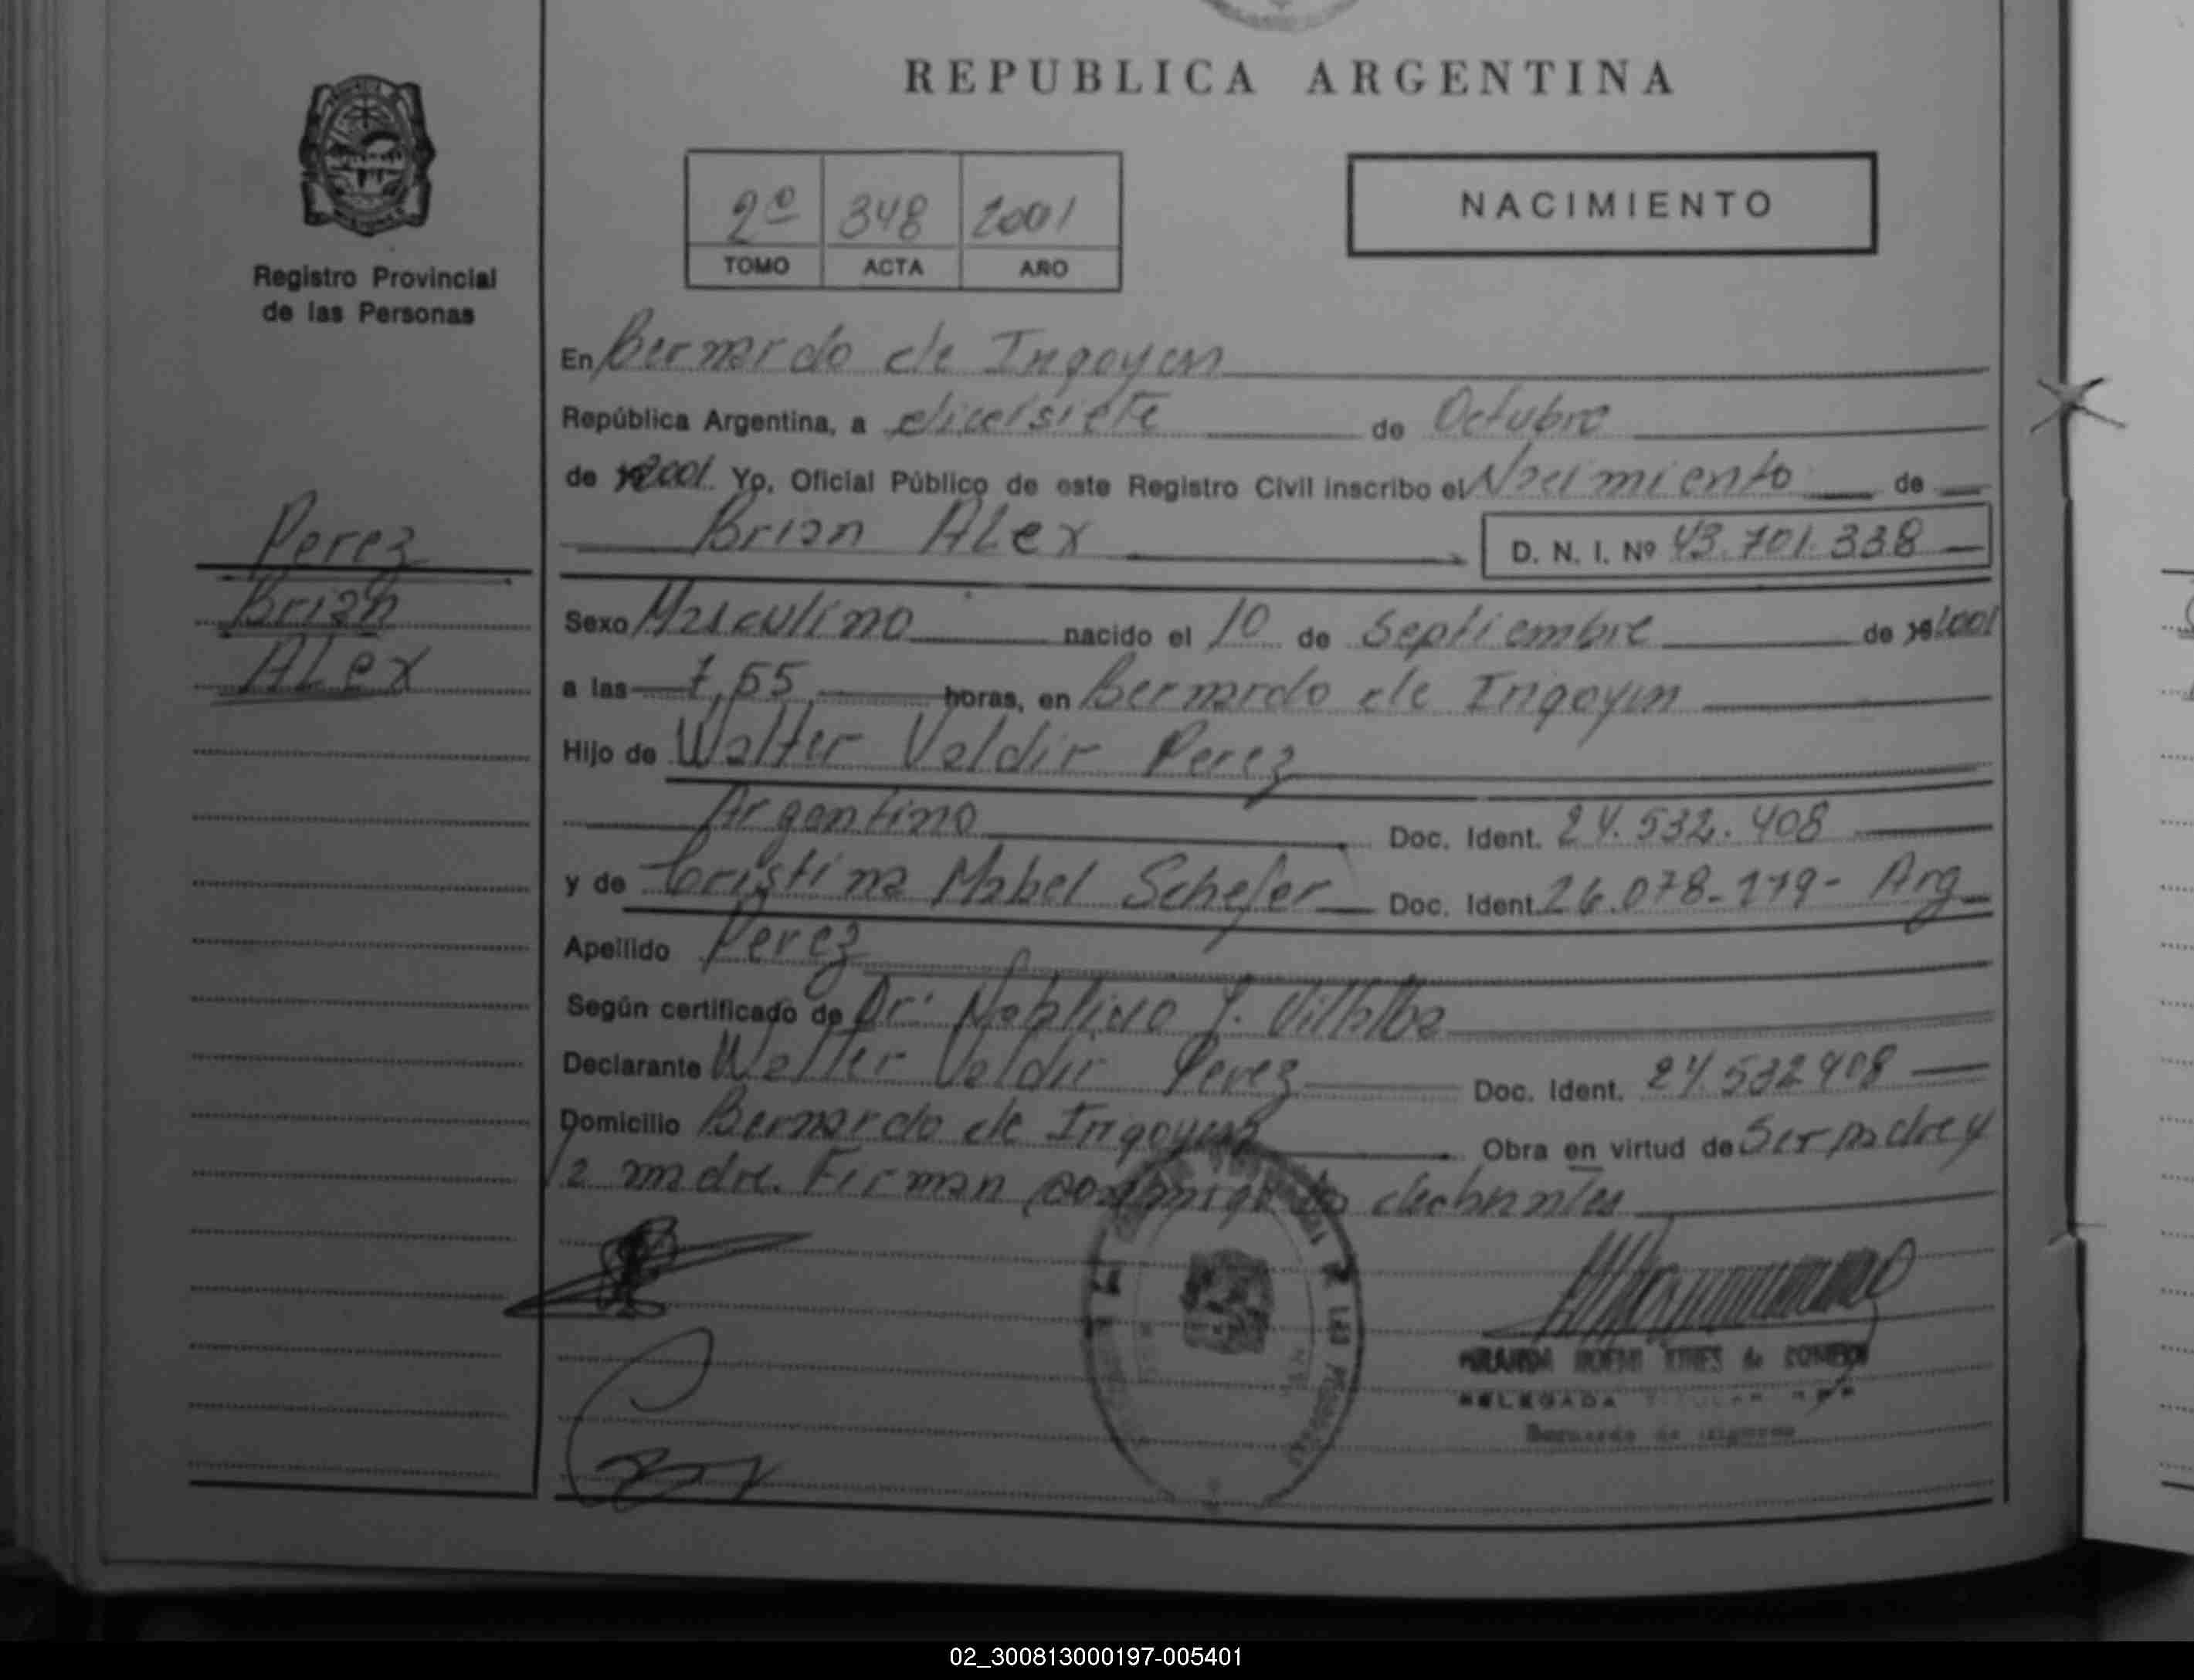 REPUBLICA ARGENTINA
2º 348 2001
TOMO ACTA AÑO
NACIMIENTO
Registro Provincial
de las Personas
Perez
Brian
ALex
En Bernardo de Irigoyen
República Argentina, a diecisiete de Octubre
de 2001 Yo, Oficial Público de este Registro Civil inscribo el Nacimiento de
Brian ALex D. N. I. Nº 43.701.338
Sexo Masculino nacido el 10 de Septiembre de 2001
a las 7,55 horas, en Bernardo de Irigoyen
Hijo de Walter Valdir Perez
Argentino Doc. Ident. 24.532.408
y de Cristina Mabel Schefer Doc. Ident. 26.078-179- Arg
Apellido Perez
Según certificado de Dr. J. Villalba
Declarante Walter Valdir Perez Doc. Ident. 24.532408
Domicilio Bernardo de Irigoyen Obra en virtud de Ser padre y
la madre. Firman
DELEGADA TITULAR
Bernardo de Irigoyen
02_300813000197-005401